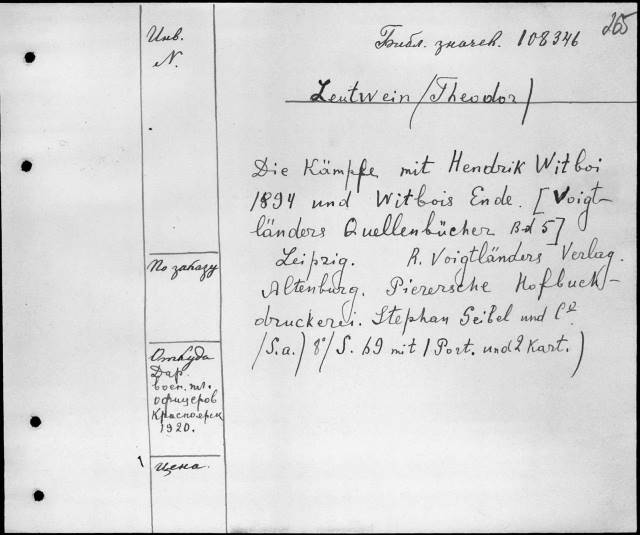 265
Библ. значек. 108346
Инв.
N.
Leutwein /Theodor/
Die Kämpfe mit Hendrik Witboi
1894 und Witbois Ende. [Voigt-
länders Quellenbücher Bd 5]
Leipzig. R. Voigtländers Verlag.
Altenburg. Pierersche Hofbuch-
druckerei. Stephan Geibel und Cº
/S.a.) 8°/S. 69 mit 1 Port. und 2 Kart.)
По заказу
Откуда
Дар.
воен. пл.
офицеров
Красноярск
1920.
Цена.